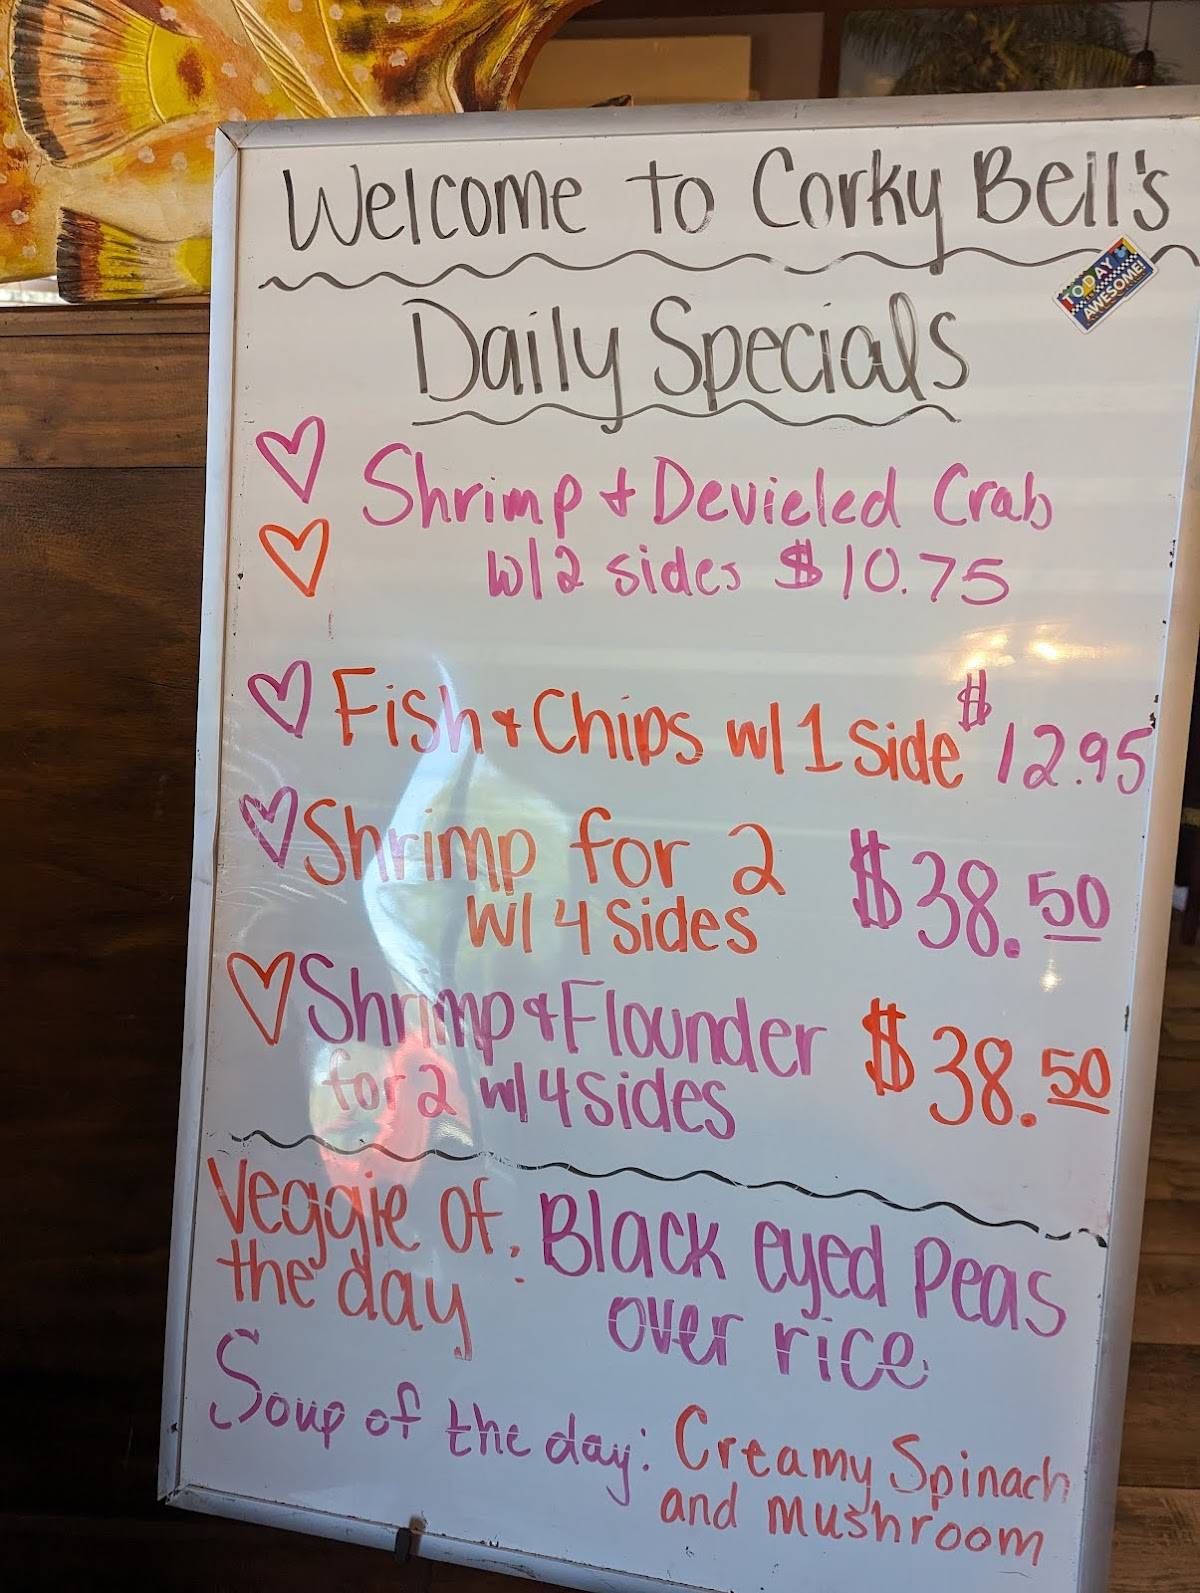 Welcome to Corky Bell's
TODAY
AWESOME!
Daily Specials
Shrimp + Devieled Crab
w/2 sides $10.75
Fish + Chips w/1 side $12.95
Shrimp for 2 $38.50
w/ 4 sides
Shrimp & Flounder $38.50
for 2 w/ 4 sides
Veggie of : Black eyed Peas
the day over rice
Soup of the day: Creamy Spinach
and mushroom